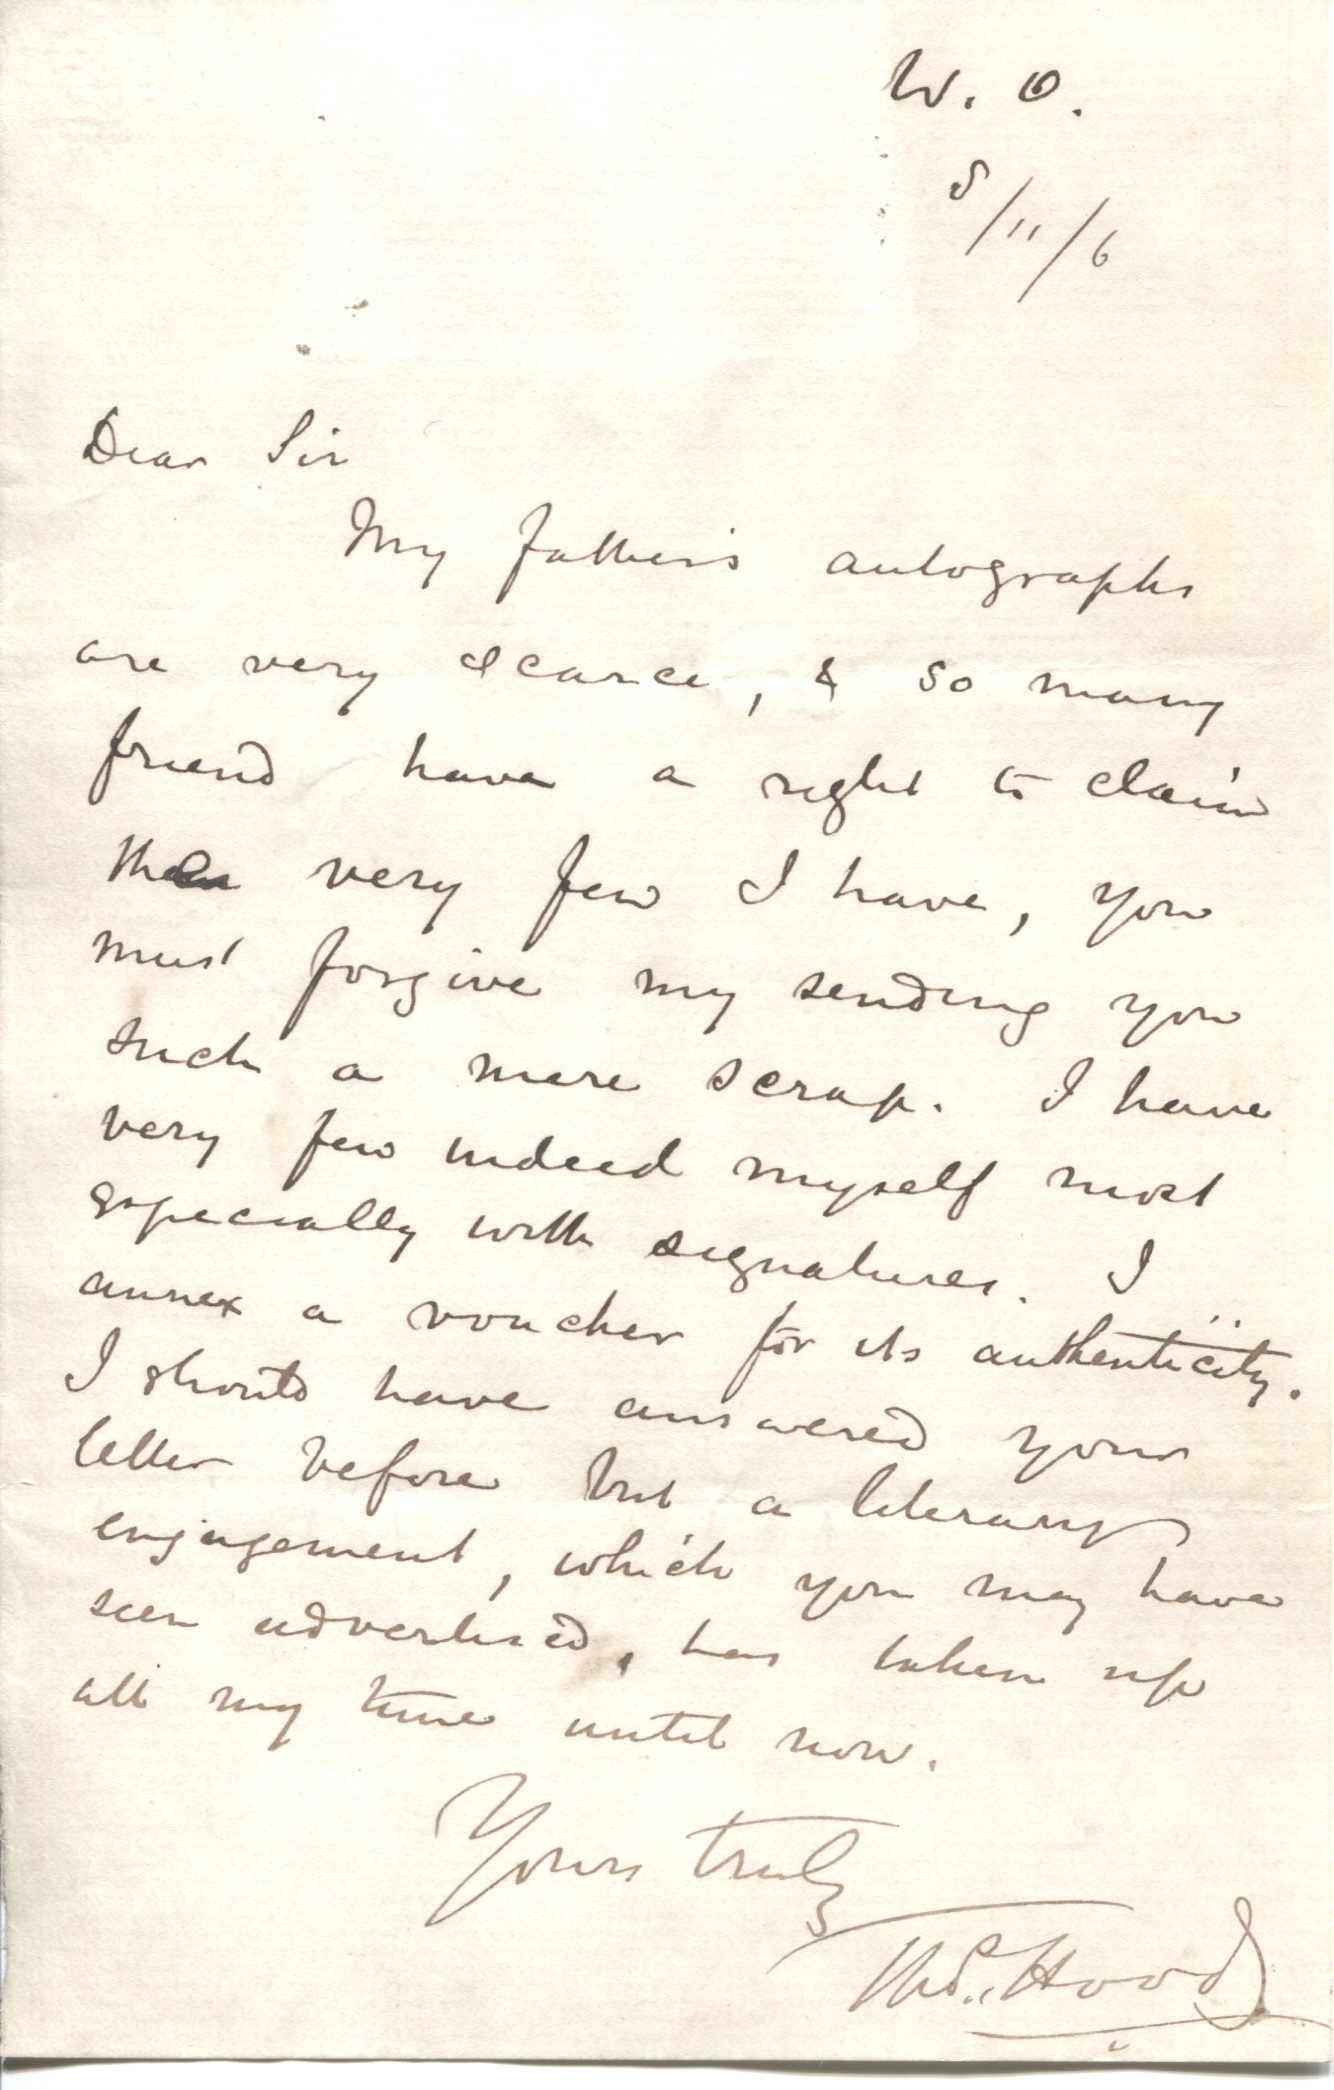 W. O.
8/11/6
Dear Sir
My father's autographs
are very scarce, & so many
friend have a right to claim
the very few I have, you
must forgive my sending you
such a mere scrap. I have
very few indeed myself most
especially with signatures. I
annex a voucher for its authenticity.
I should have answered your
letter before but a literary
engagement, which you may have
seen advertised, has taken up
all my time until now.
Yours truly
Thos. Hood